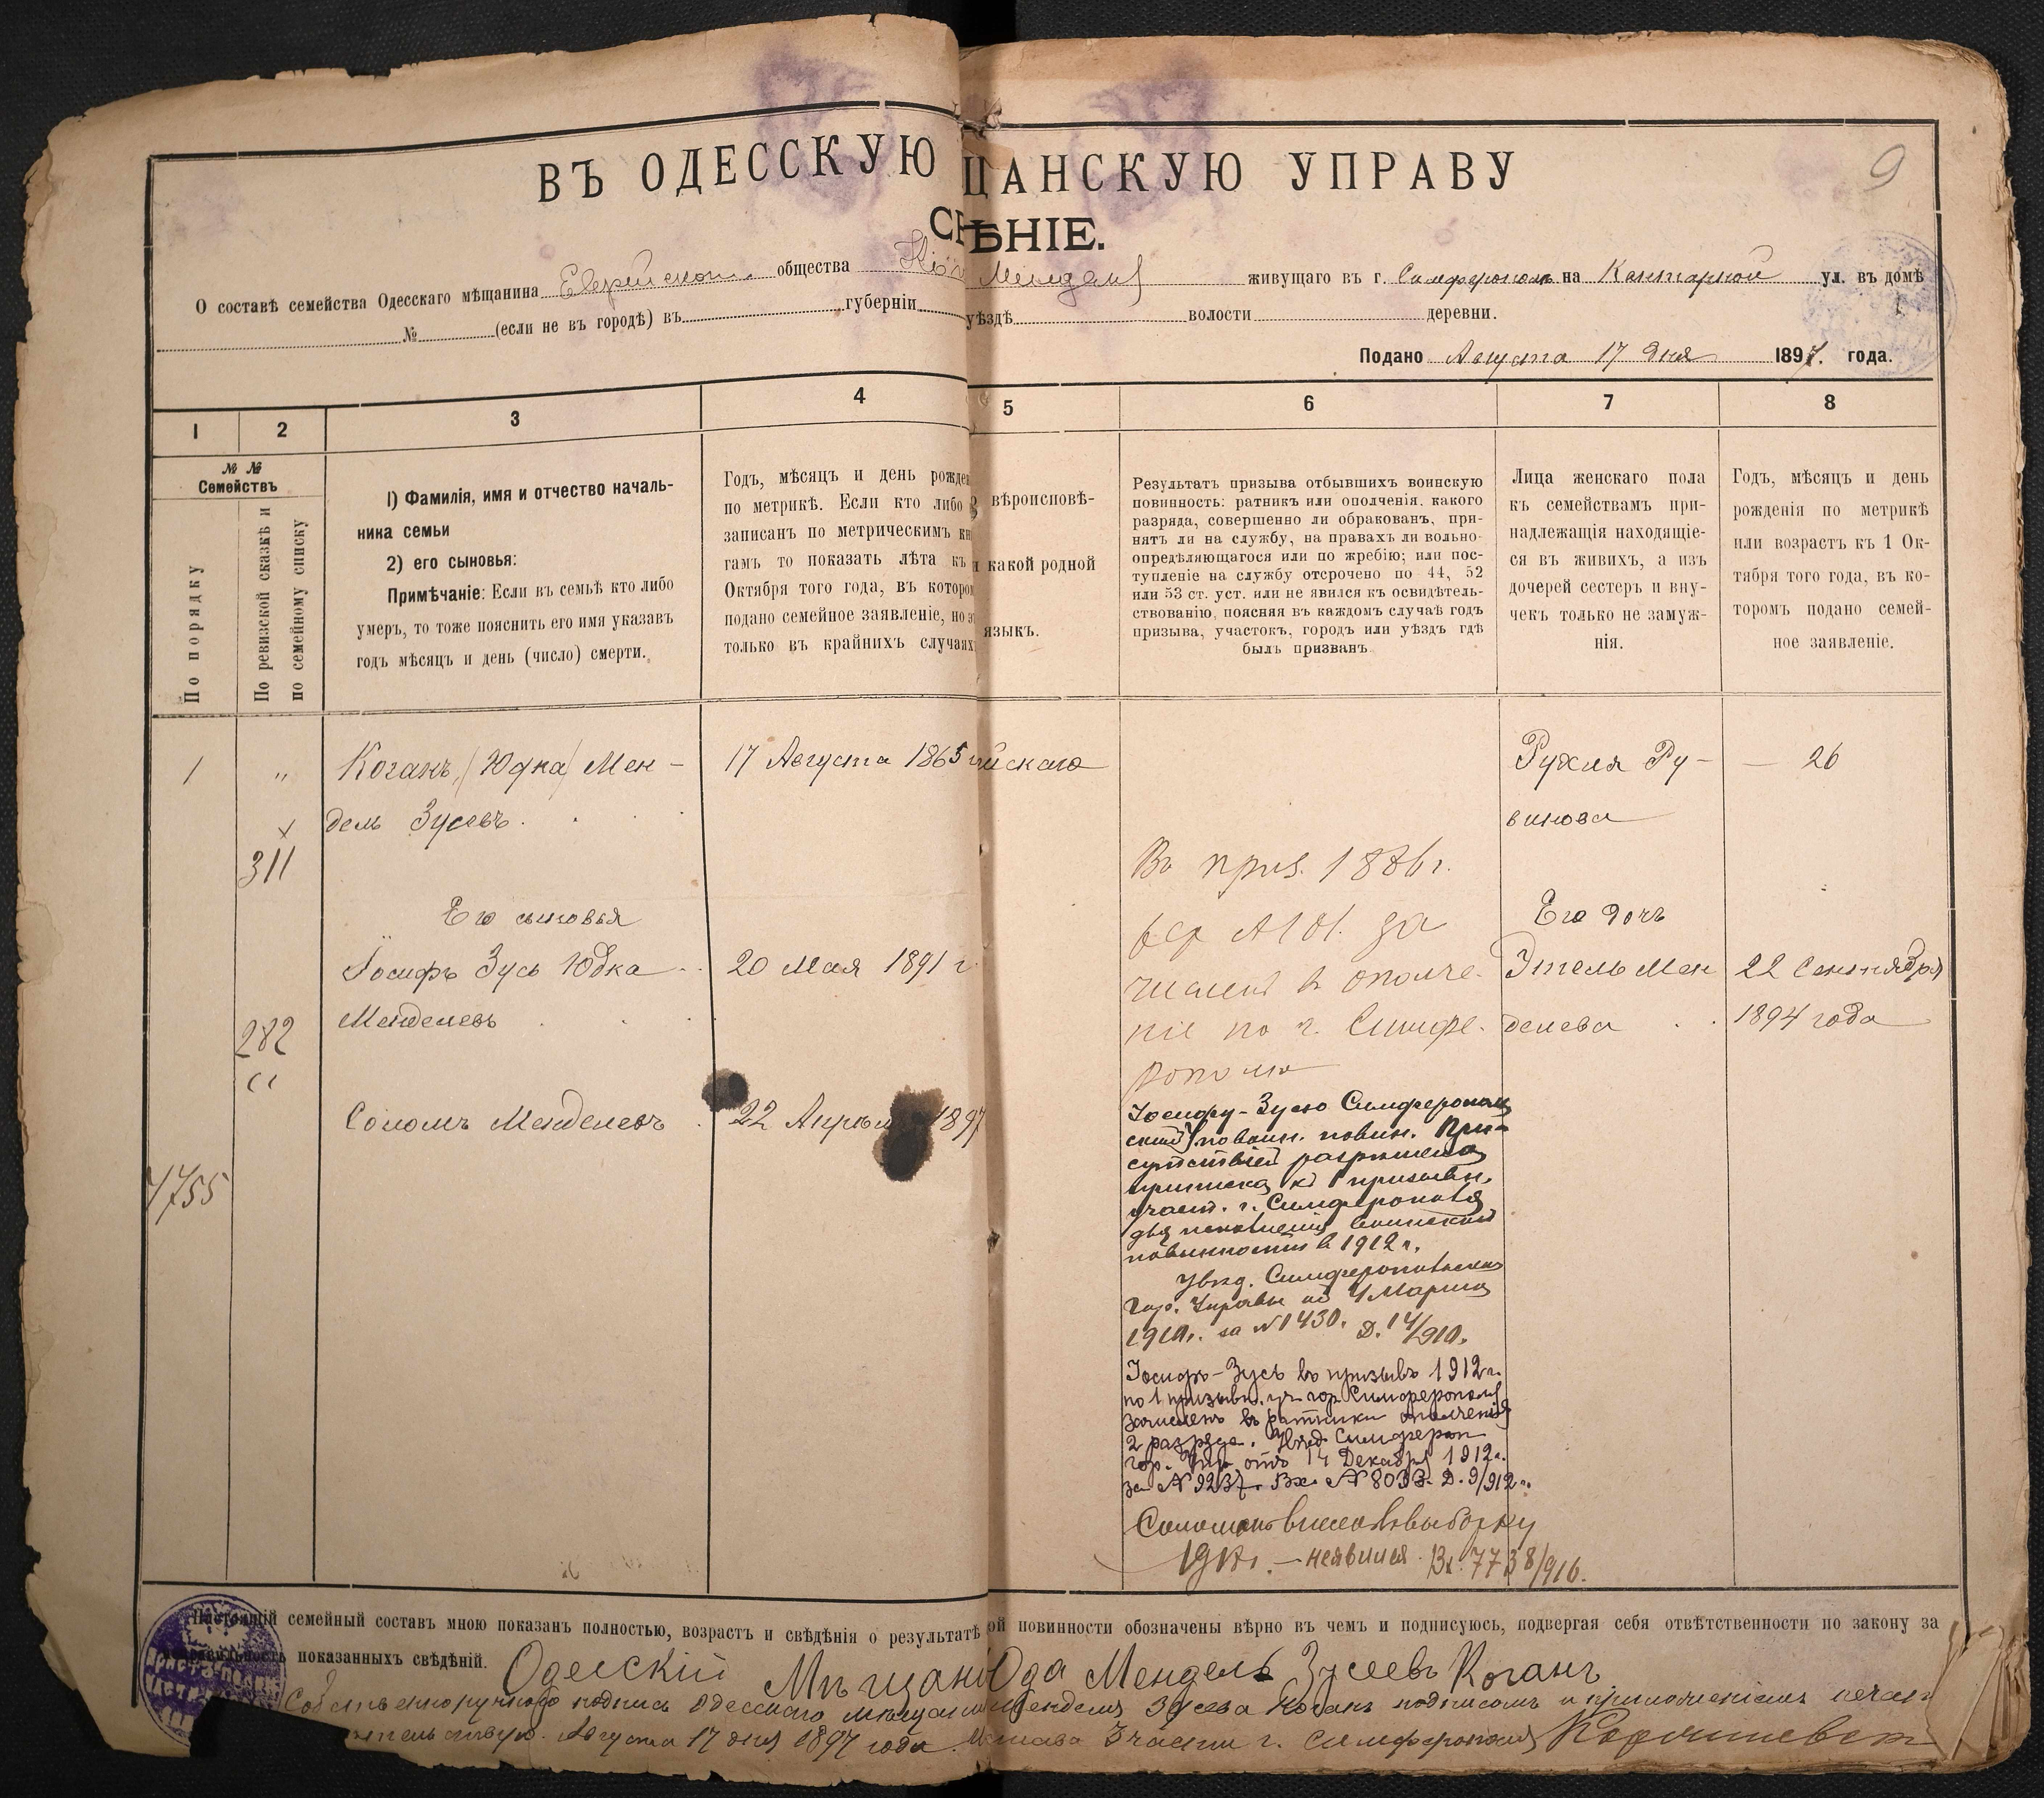 ВЪ ОДЕССКУЮ ЦАНСКУЮ УПРАВУ
9
СВѢНІЕ.
О составѣ семейства Одесскаго мѣщанина Еврейскаго общества Мендель живущаго въ г. Симферополь на Кантарной ул. въ домѣ
№ (если не въ городѣ) въ губерніи уѣздѣ волости деревни.
Подано Августа 17 дня 1897. года.
1 2 3 4 5 6 7 8
№ №
Семействъ
По порядку
По ревизской сказкѣ и
по семейному списку
1) Фамилія, имя и отчество началь-
ника семьи
2) его сыновья:
Примѣчаніе: Если въ семьѣ кто либо
умеръ, то тоже пояснить его имя указавъ
годъ мѣсяцъ и день (число) смерти.
Годъ, мѣсяцъ и день рожде
по метрикѣ. Если кто либо
записанъ по метрическимъ кн
гамъ то показать лѣта къ
Октября того года, въ которо
подано семейное заявленіе, но э
только въ крайнихъ случаях
вѣроисповѣ-
какой родной
языкъ.
Результатъ призыва отбывшихъ воинскую
повинность: ратникъ или ополченія, какого
разряда, совершенно ли обракованъ, при-
нятъ ли на службу, на правахъ ли вольно-
опредѣляющагося или по жребію; или пос-
тупленіе на службу отсрочено по 44, 52
или 53 ст. уст. или не явился къ освидѣтель-
ствованію, поясняя въ каждомъ случаѣ годъ
призыва, участокъ, городъ или уѣздъ гдѣ
былъ призванъ
Лица женскаго пола
къ семействамъ при-
надлежащія находящіе-
ся въ живихъ, а изъ
дочерей сестеръ и вну-
чекъ только не замуж-
нія.
Годъ, мѣсяцъ и день
рожденія по метрикѣ
или возрастъ къ 1 Ок-
тября того года, въ ко-
торомъ подано семей-
ное заявленіе.
1 " Коганъ, (Юдка) Мен- 17 Августа 1865 йскаго
дель Зусевъ.
311
Его сыновья
Іосифъ Зусь Юдка 20 Мая 1891 г
Менделевъ
282
Соломъ Менделевъ 22 Апрѣля 1897
1755
Въ приз. 1886 г.
за
численъ въ ополче-
ніе по г. Симфе-
рополю
Іосифу-Зусю Симферополь
скимъ по воин. повин. При-
сутствіем разрѣшена
приписка къ 1 призывн.
участ. г. Симферополя
для исполненія воинской
повинности в 1912 г.
Увѣд. Симферопольской
Гор. Управы от 4 Марта
1910 г. за № 1430. Д. 14/910.
Іосифъ-Зусь въ призывъ 1912 г.
по 1 призывн. уч гор Симферополя
зачисленъ въ ратники ополченія
2 разряда. Увѣд Симфероп
гор. Упр. отъ 14 Декабря 1912 г.
за № 9237. Вх. № 8033. Д. 9/912 г.
неявился. Вх. 7738/916.
Рухля Ру- — 26
винова
Его дочь
Этель Мен 22 Сентября
делева 1894 года
Настоящій семейный составъ мною показанъ полностью, возрастъ и свѣдѣнія о результатѣ ой повинности обозначены вѣрно въ чемъ и подписуюсь, подвергая себя отвѣтственности по закону за
показанныхъ свѣдѣній. Одесскій Мѣщан Юда Мендель Зусевъ Коганъ
Собственноручную подпись Одесскаго мѣщанина Менделя Зусева Коганъ подписомъ и приложеніемъ печати
Августа 17 дня 1897 года. 3 части г. Симферополя